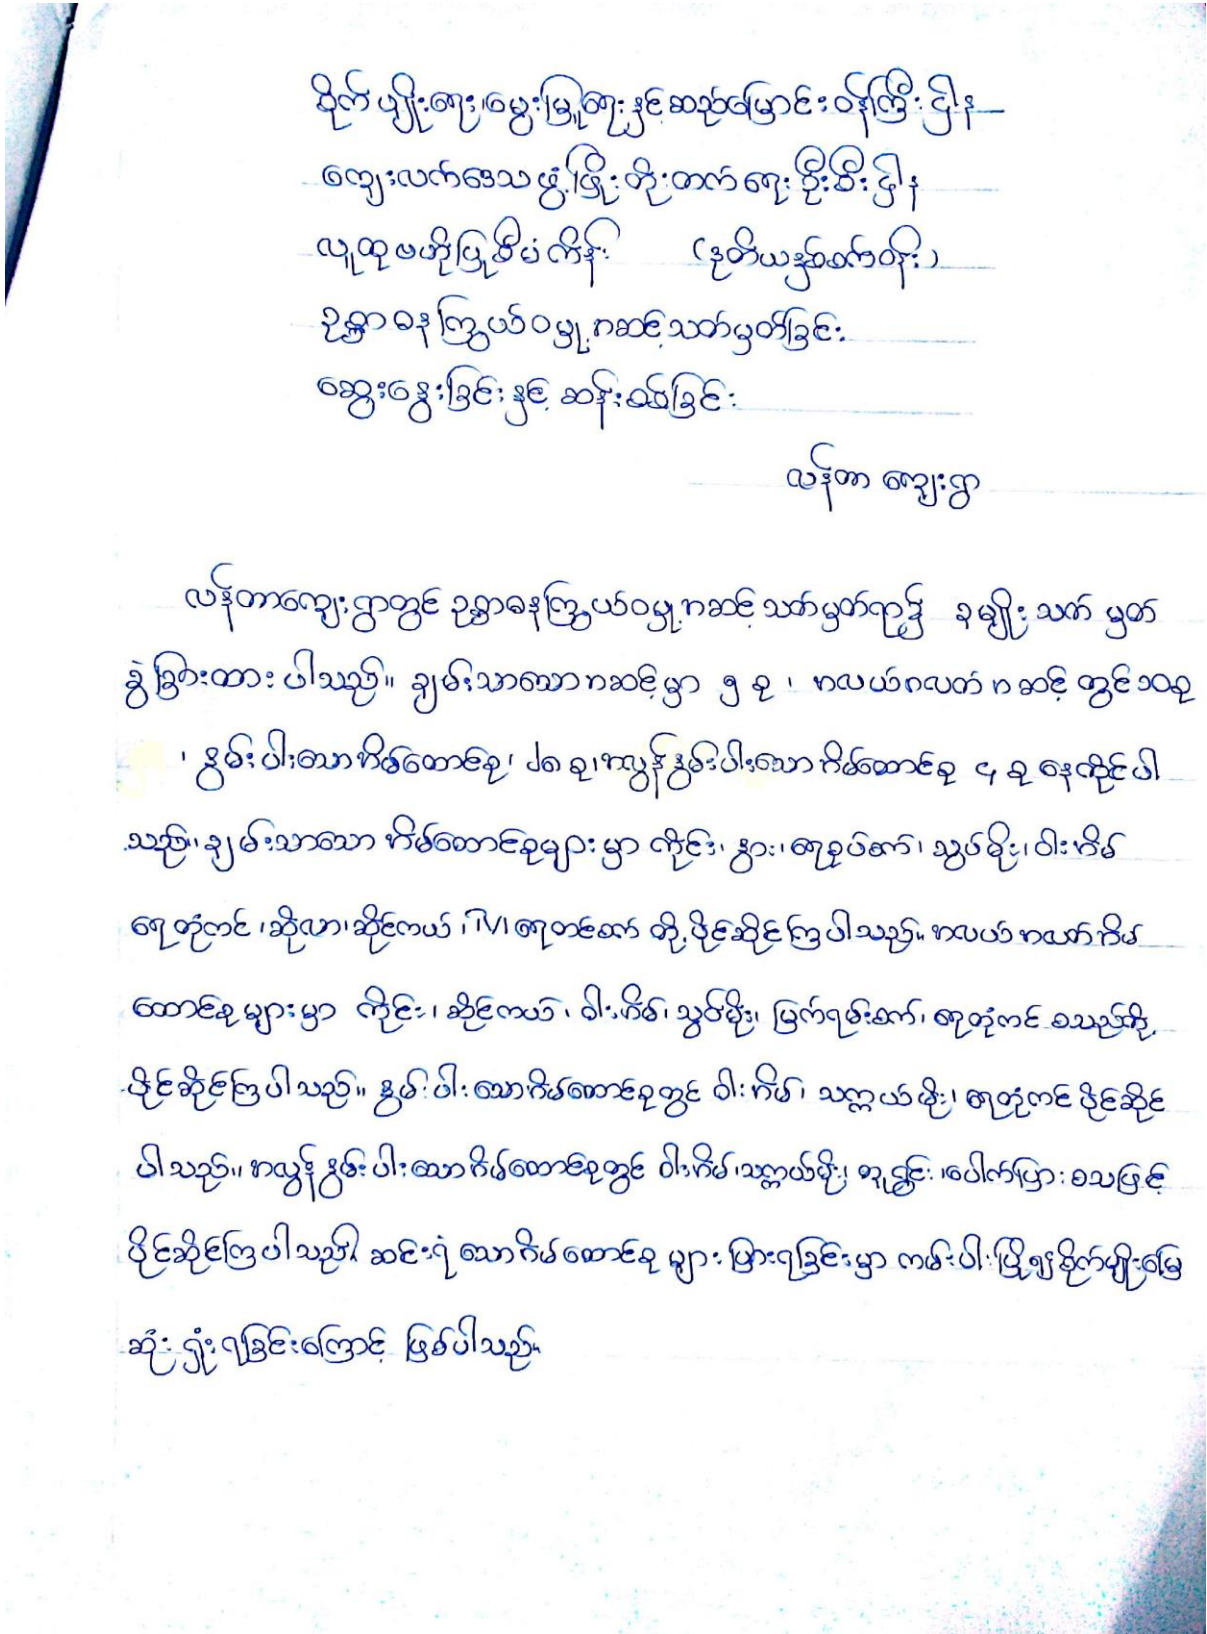 စိုက်ပျိုးရေး၊မွေးမြူရေးနှင့်ဆည်မြောင်းဝန်ကြီးဌါန
ကျေးလက်ဒေသဖွံ့ဖြိုးတိုးတက်ရေးဦးစီးဌါန
လူထုဗဟိုပြုစီမံကိန်း (ဒုတိယနှစ်စက်ဝန်း)
ဥစ္စာဓနကြွယ်ဝမှု့အဆင့်သတ်မှတ်ခြင်း
ဆွေးနွေးခြင်းနှင့် ဆန်းစစ်ခြင်း
လန်တာ ကျေးရွာ
လန်တာကျေးရွာတွင် ဥစ္စာဓနကြွယ်ဝမှု့အဆင့်သတ်မှတ်ရာ၌ ၃မျိုး သတ် မှတ်
ခွဲခြားထားပါသည်။ ချမ်းသာသောအဆင့်မှာ ၅ ခု ၊ အလယ်အလတ်အဆင့်တွင်၁၀ခု
၊ နွမ်းပါးသောအိမ်ထောင်ခု၊ ၂၈ ခု၊အလွန်နွမ်းပါးသောအိမ်ထောင်ခု ၄ ခု နေထိုင်ပါ
သည်။ ချမ်းသာသော အိမ်ထောင်ခုများမှာ ကိုင်း၊ နွား၊ ရေစုပ်စက်၊ သွပ်မိုး၊ ဝါးအိမ်
ရေတုံကင် ၊ဆိုလာ၊ဆိုင်ကယ် ၊TV၊ ရေတင်စက် တို့ပိုင်ဆိုင်ကြပါသည်။ အလယ်အလတ်အိမ်
ထောင်ခုများမှာ ကိုင်း၊ ဆိုင်ကယ်၊ ဝါးအိမ်၊ သွပ်မိုး၊ မြက်ရမ်းစက်၊ ရေတုံကင် စသည်တို့
ပိုင်ဆိုင်ကြပါသည်။ နွမ်းပါးသောအိမ်ထောင်ခုတွင် ဝါးအိမ်၊ သက္ကယ်မိုး၊ ရေတုံကင် ပိုင်ဆိုင်
ပါသည်။ အလွန်နွမ်းပါးသောအိမ်ထောင်ခုတွင် ဝါးအိမ်၊သက္ကယ်မိုး၊ တူရွင်း၊ပေါက်ပြားစသဖြင့်
ပိုင်ဆိုင်ကြပါသည်။ ဆင်းရဲသောအိမ်ထောင်ခုများ ပြားရခြင်းမှာ ကမ်းပါးပြို၍ စိုက်ပျိုးမြေ
ဆုံးရှုံးရခြင်းကြောင့် ဖြစ်ပါသည်။